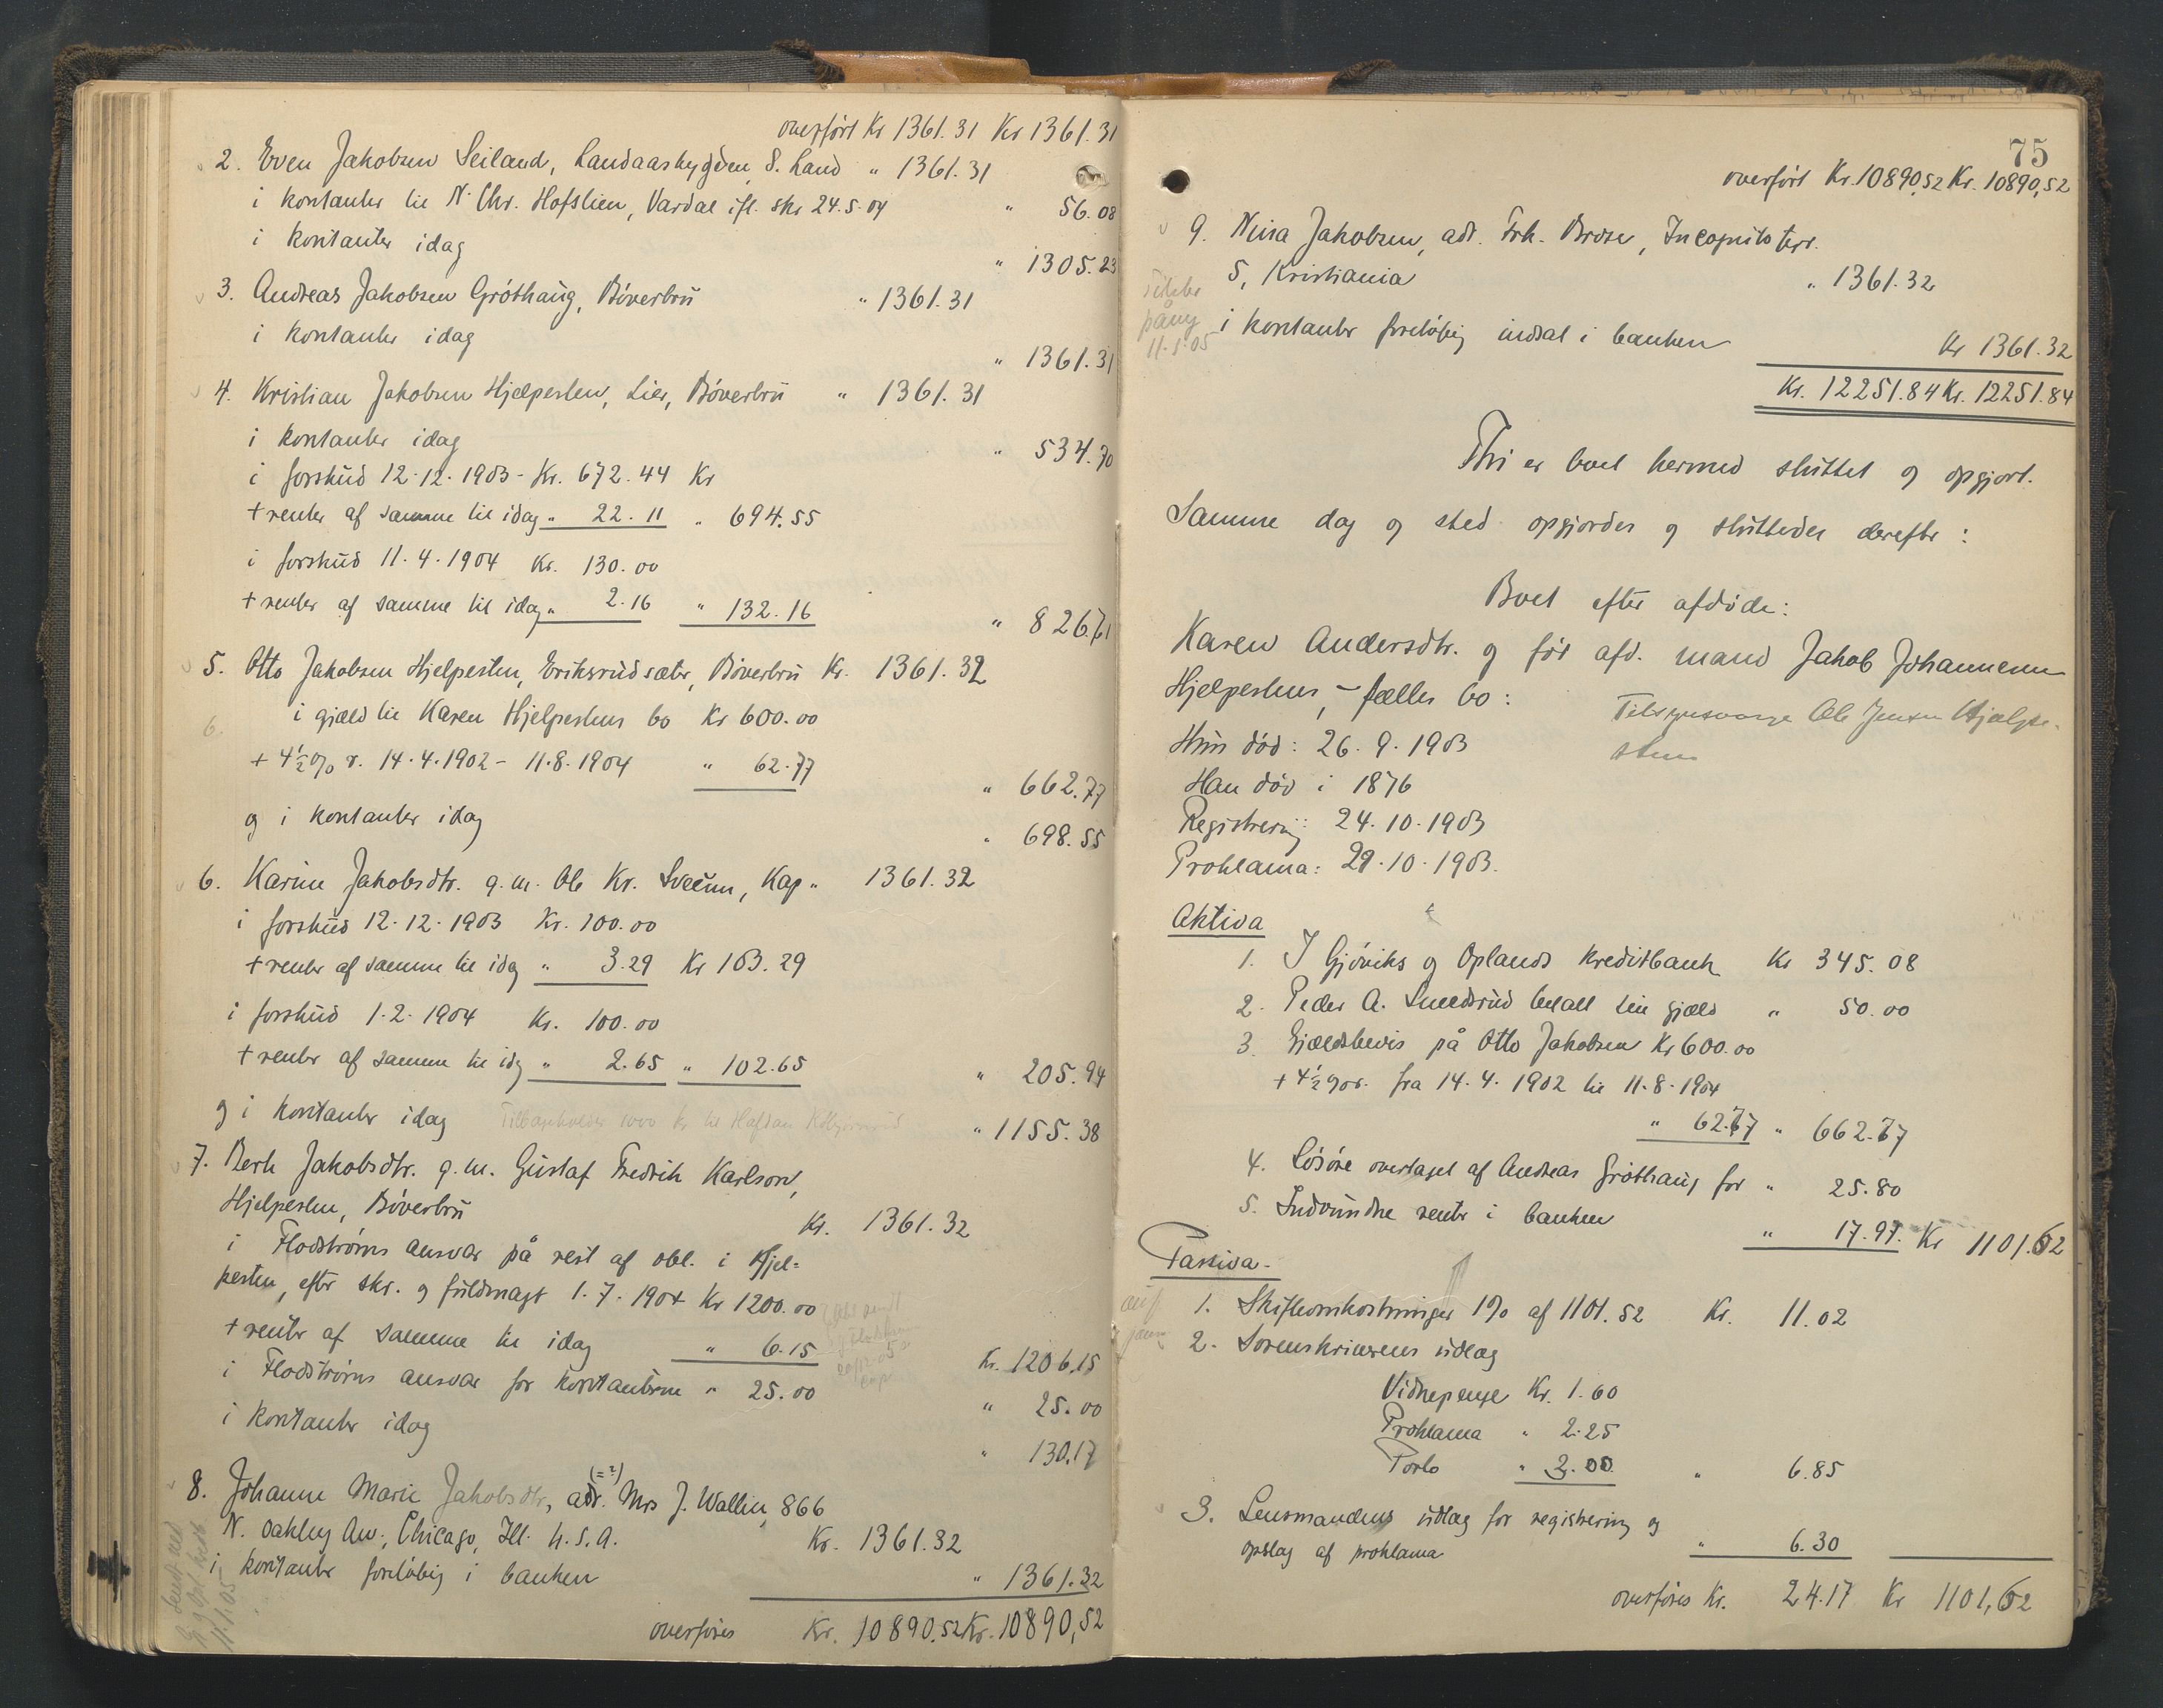 overført Kr 1361.31 Kr 1361.31
2. Even Jakobsen Seiland, Landaasbygden, S. Land " 1361.31
i kontanter til N. Chr. Hofslien, Vardal ifl. skr 24.5.04 " 56.08
i kontanter idag " 1305.23
3. Andreas Jakobsen Gróthaug, Bóverbru " 1361.31
i kontanter idag " 1361.31
4. Kristian Jakobsen Hjelpesten, Lier, Bóverbru " 1361.31
i kontanter idag " 534.70
i forskud 12.12.1903 - Kr. 672.44 Kr
+ renter af samme til idag " 22.11 " 694.55
i forskud 11.4.1904 Kr. 130.00
+ renter af samme til idag " 2.16 " 132.16 " 826.71
5. Otto Jakobsen Hjelpesten, Eriksrudsæter, Bóverbru Kr. 1361.32
6. i gjæld til Karen Hjelpestens bo Kr 600.00
+ 4½ % r. 14.4.1902 - 11.8.1904 " 62.77 " 662.77
og i kontanter idag " 698.55
6. Karine Jakobsdtr. g.m. Ole Kr. Sveum, Kap " 1361.32
i forskud 12.12.1903 Kr. 100.00
+ renter af samme til idag " 3.29 Kr 103.29
i forskud 1.2.1904 Kr. 100.00
+ renter af samme til idag " 2.65 " 102.65 " 205.94
og i kontanter idag Tilbageholdes 1000 Kr til Halfdan " 1155.38
7. Berte Jakobsdtr. g.m. Gustaf Fredrik Karlson,
Hjelpesten, Bóverbru Kr. 1361.32
i Flodstróms ansvar på rest af obl. i Hjel=
pesten, efter skr. og fuldmagt 1.7.1904 Kr 1200.00
+ renter af samme til idag " 6.15 Kr. 1206.15
i Flodstróms ansvar for kontanterne " 25.00 " 25.00
i kontanter idag " 130.17
8. Johanne Marie Jakobsdtr, adr. (=?) Mrs J. Wallin, 866
N. Oakley Av., Chicago, Ill. U.S.A. Kr. 1361.32
i kontanter foreløbig i banken " 1361.32
overføres Kr. 10890.52 Kr. 10890,52
11.1.05
75
overført Kr. 10890,52 Kr. 10890,52
9. Nina Jakobsen, adr. Frk. Broser, Incognito terr.
5, Kristiania " 1361.32
i kontanter foreløbig indsat i banken Kr 1361.32
påny
11.1.05
Kr. 12251.84 Kr. 12251.84
Thi er boet hermed sluttet og opgjort.
Samme dag og sted opgjordes og sluttedes derefter:
Boet efter afdøde:
Karen Andersdtr. og før afd. mand Jakob Johannesen
Hjelpestens, - fælles bo:
Tilsynsværge Ole Jensen Hjælpe-
sten
Hun død: 26.9.1903
Han død i 1876
Registrering: 24.10.1903
Proklama: 29.10.1903.
Aktiva
1. I Gjøviks og Oplands Kreditbank Kr 345.08
2. Peder A. Smedsrud betalt sin gjæld " 50.00
3. Gjældsbevis på Otto Jakobsen Kr 600.00
+ 4½ % r. fra 14.4.1902 til 11.8.1904
" 62.77 " 662.77
4. Løsøre overtaget af Andreas Gróthaug for " 25.80
5. Indvundne renter i banken " 17.97. Kr 1101.62
Passiva.
1. Skifteomkostninger 1% af 1101.52 Kr. 11.02
2. Sorenskriverens udlæg
Vidnepenge Kr. 1.60
Proklama " 2.25
Porto " 3.00 " 6.85
3. Lensmandens udlæg for registrering og
opslag af proklama " 6.30
overføres Kr. 24.17 Kr 1101,62